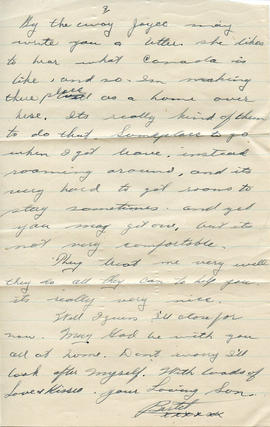 3
By the way Joyce may
write you a letter. she likes
to hear what Canada is
like, and so. Im making
there place
as a home over
here. Its really kind of them
to do that. Someplace to go
when I get leave. instead
roaming around, and its
very hard to get rooms to
stay sometimes. and yet
you may get on, but its
not very comfortable.
They treat me very well
they do all they can to help you
its really very nice.
Well I guess I'll close for
now. May God be with you
all at home. Dont worry I'll
look after myself. With loads of
Love & Kisses. your Loving Son.
xxxxxx